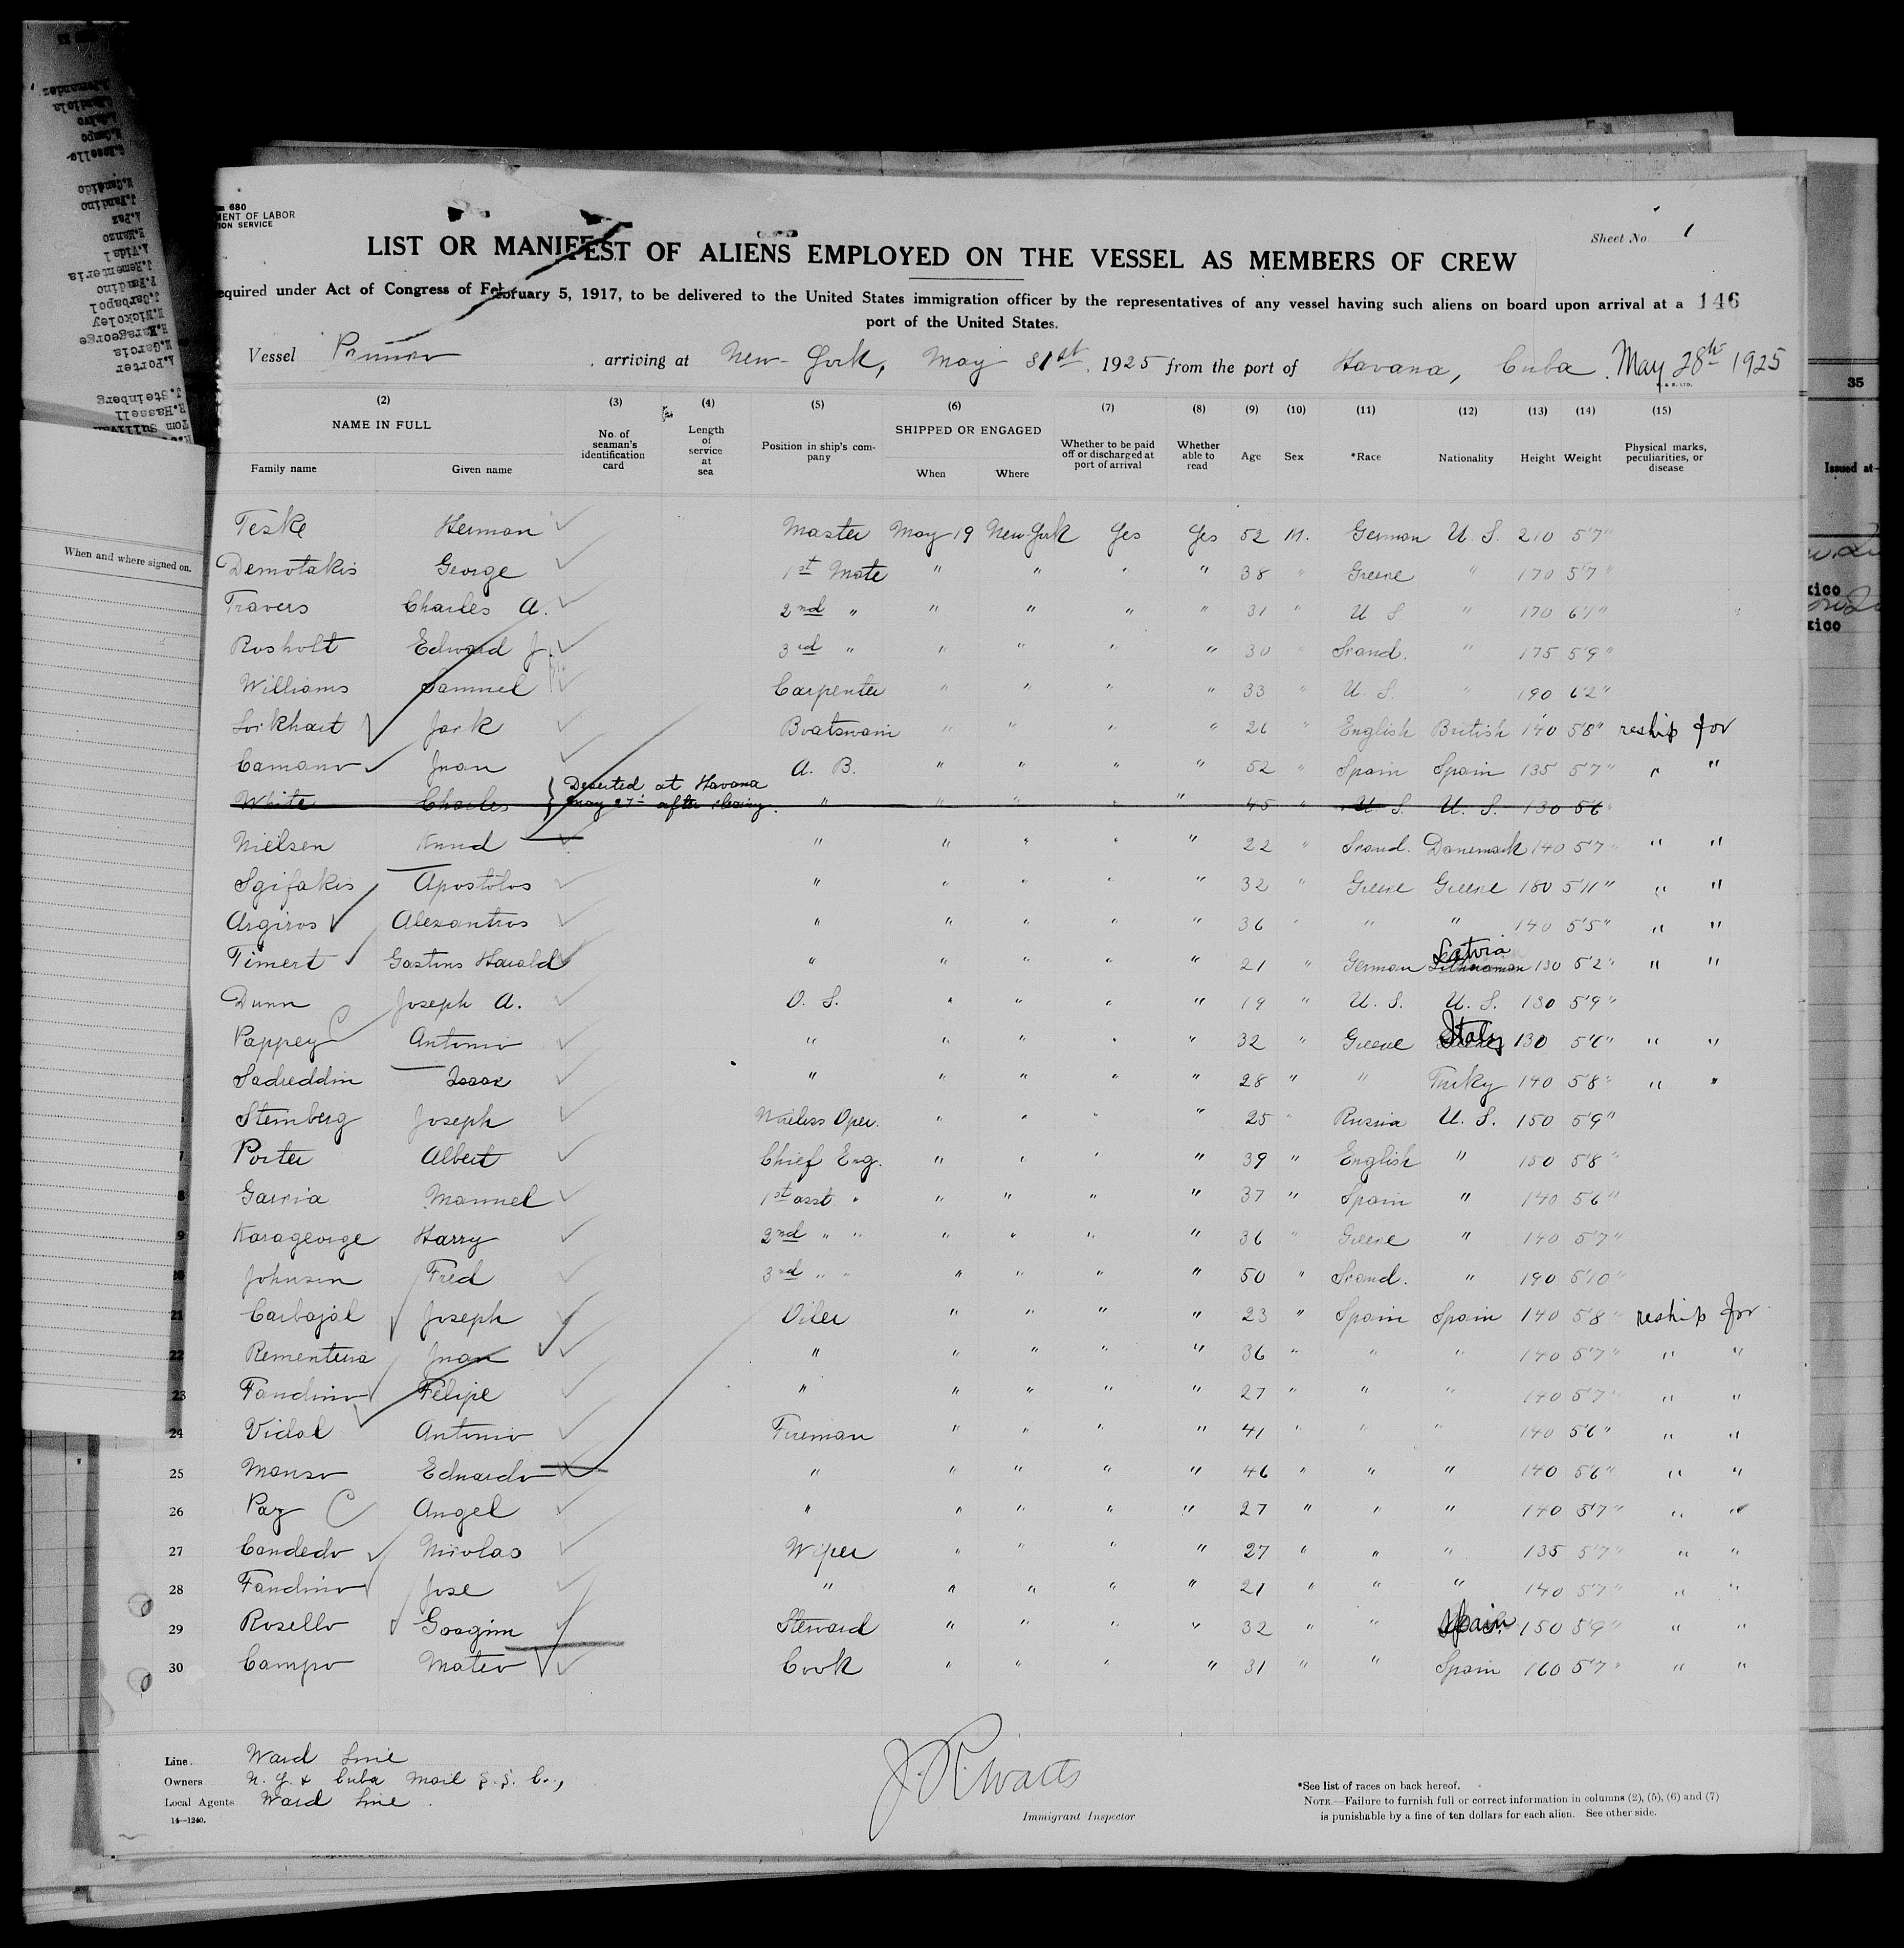 680
MENT OF LABOR
ION SERVICE
Sheet No. 1
LIST OR MANIFEST OF ALIENS EMPLOYED ON THE VESSEL AS MEMBERS OF CREW
equired under Act of Congress of February 5, 1917, to be delivered to the United States immigration officer by the representatives of any vessel having such aliens on board upon arrival at a 146
port of the United States.
Vessel , arriving at New-York, May 31st, 1925 from the port of Havana, Cuba. May 28th 1925
(2) (3) (4) (5) (6) (7) (8) (9) (10) (11) (12) (13) (14) (15)
NAME IN FULL No. of seaman's identification card Length of service at sea Position in ship's company SHIPPED OR ENGAGED Whether to be paid off or discharged at port of arrival Whether able to read Age Sex *Race Nationality Height Weight Physical marks, peculiarities, or disease
Family name Given name When Where
Teske Herman Master May 19 New-York Yes Yes 52 M. German U. S. 210 5'7"
Demotakis George 1st Mate " " " " 38 " Greece " 170 5'7"
Travers Charles A. 2nd " " " " " 31 " U S " 170 6'1"
Rosholt Edward J. 3rd " " " " " 30 " Scand. " 175 5'9"
Williams Samuel Carpenter " " " " 33 " U. S. " 190 6'2"
Lockhart Jack Boatswain " " " " 26 " English British 140 5'8" reship for
Camano Juan A. B. " " " " 52 " Spain Spain 135 5'7" " "
White Charles Deserted at Havana May 27th after clearing. " " " " " 45 " U. S. U. S. 130 5'6
Nielsen Knud " " " " " 22 " Scand. Danemark 140 5'7" " "
Sgifakis Apostolos " " " " " 32 " Greece Greece 180 5'11" " "
Argiros Alexantros " " " " " 36 " " " 140 5'5" " "
Timert Gastins Harald " " " " " 21 " German Latvia 130 5'2" " "
Dunn Joseph A. O. S. " " " " 19 " U. S. U. S. 130 5'9"
Pappey Antonio " " " " " 32 " Greece Italy 130 5'6" " "
Sadreddin Isaac " " " " " 28 " " Turky 140 5'8" " "
Steinberg Joseph Wireless Oper. " " " " 25 " Russia U. S. 150 5'9"
Porter Albert Chief Eng. " " " " 39 " English " 150 5'8"
Garcia Manuel 1st asst " " " " " 37 " Spain " 140 5'6"
Karageorge Harry 2nd " " " " " " 36 " Greece " 140 5'7"
Johnson Fred 3rd " " " " " " 50 " Scand. " 190 5'10"
21 Carbajal Joseph Oiler " " " " 23 " Spain Spain 140 5'8" reship for
22 Rementeria Juan " " " " " 36 " " " 140 5'7" " "
23 Fandino Felipe " " " " " 27 " " " 140 5'7" " "
24 Vidal Antonio Fireman " " " " 41 " " " 140 5'6" " "
25 Manso Eduardo " " " " " 46 " " " 140 5'6" " "
26 Paz Angel " " " " " 27 " " " 140 5'7" " "
27 Candedo Nicolas Wiper " " " " 27 " " " 135 5'7" " "
28 Fandino Jose " " " " " 21 " " " 140 5'7" " "
29 Rosello Goagim Steward " " " " 32 " " Spain 150 5'9" " "
30 Campo Mateo Cook " " " " 31 " " Spain 160 5'7" " "
Line Ward Line
Owners N. Y. & Cuba Mail S. S. Co.,
Local Agents Ward Line.
14—1240.
J. R. Watts
Immigrant Inspector
*See list of races on back hereof.
NOTE.—Failure to furnish full or correct information in columns (2), (5), (6) and (7)
is punishable by a fine of ten dollars for each alien. See other side.
When and where signed on.
35
Issued at
xico
xico
J.Steinberg
R.Hassell
A.Porter
M.Garcia
H.Karageorge
N.Nickoley
J.Carbapol
F.Fandino
J.Rementeria
A.Vidal
E.Manzo
A.Paz
J.Fandino
N.Candido